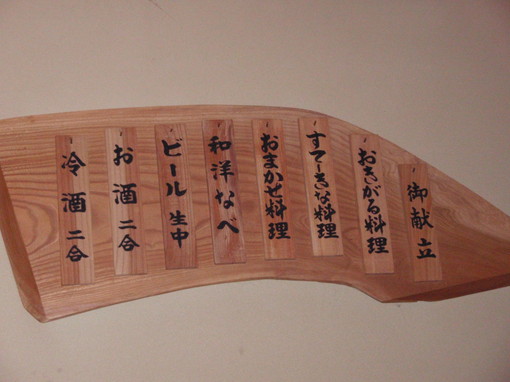 御献立
おきがる料理
すてーきな料理
おまかせ料理
和洋なべ
ビール 生中
お酒 二合
冷酒 二合